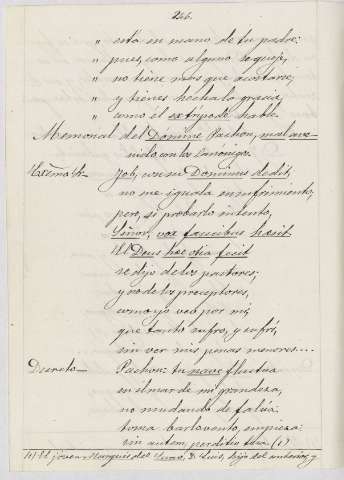 246.
" está en mano de tu padre:
" pues, como alguno se queje,
" no tiene más que acostarse,
" y tienes hecha la gracia,
" como él ex trípode hable.
Memorial del Domine Pachon, mal ave-
nido con los Canónigos.
Exzmo Sr.- Job, con su Dominus dedit,
no me iguala en sufrimiento,
pero, si probarlo intento,
Señor, vox faucibus hæsit.
El Deus hæc otia fecit
se dijo de los pastores;
y no de los preceptores,
como yo veo por mí,
que tanto sufro, y sufrí,
sin ver mis penas menores...
Decreto- Pachon: tu nave fluctua
en el mar de mi grandeza,
no mudando de falúa.
toma barlovento, empieza:
sin autem, perditio tua. (1)
(1) El joven Marquis del D. Luis, hijo del anterior, y